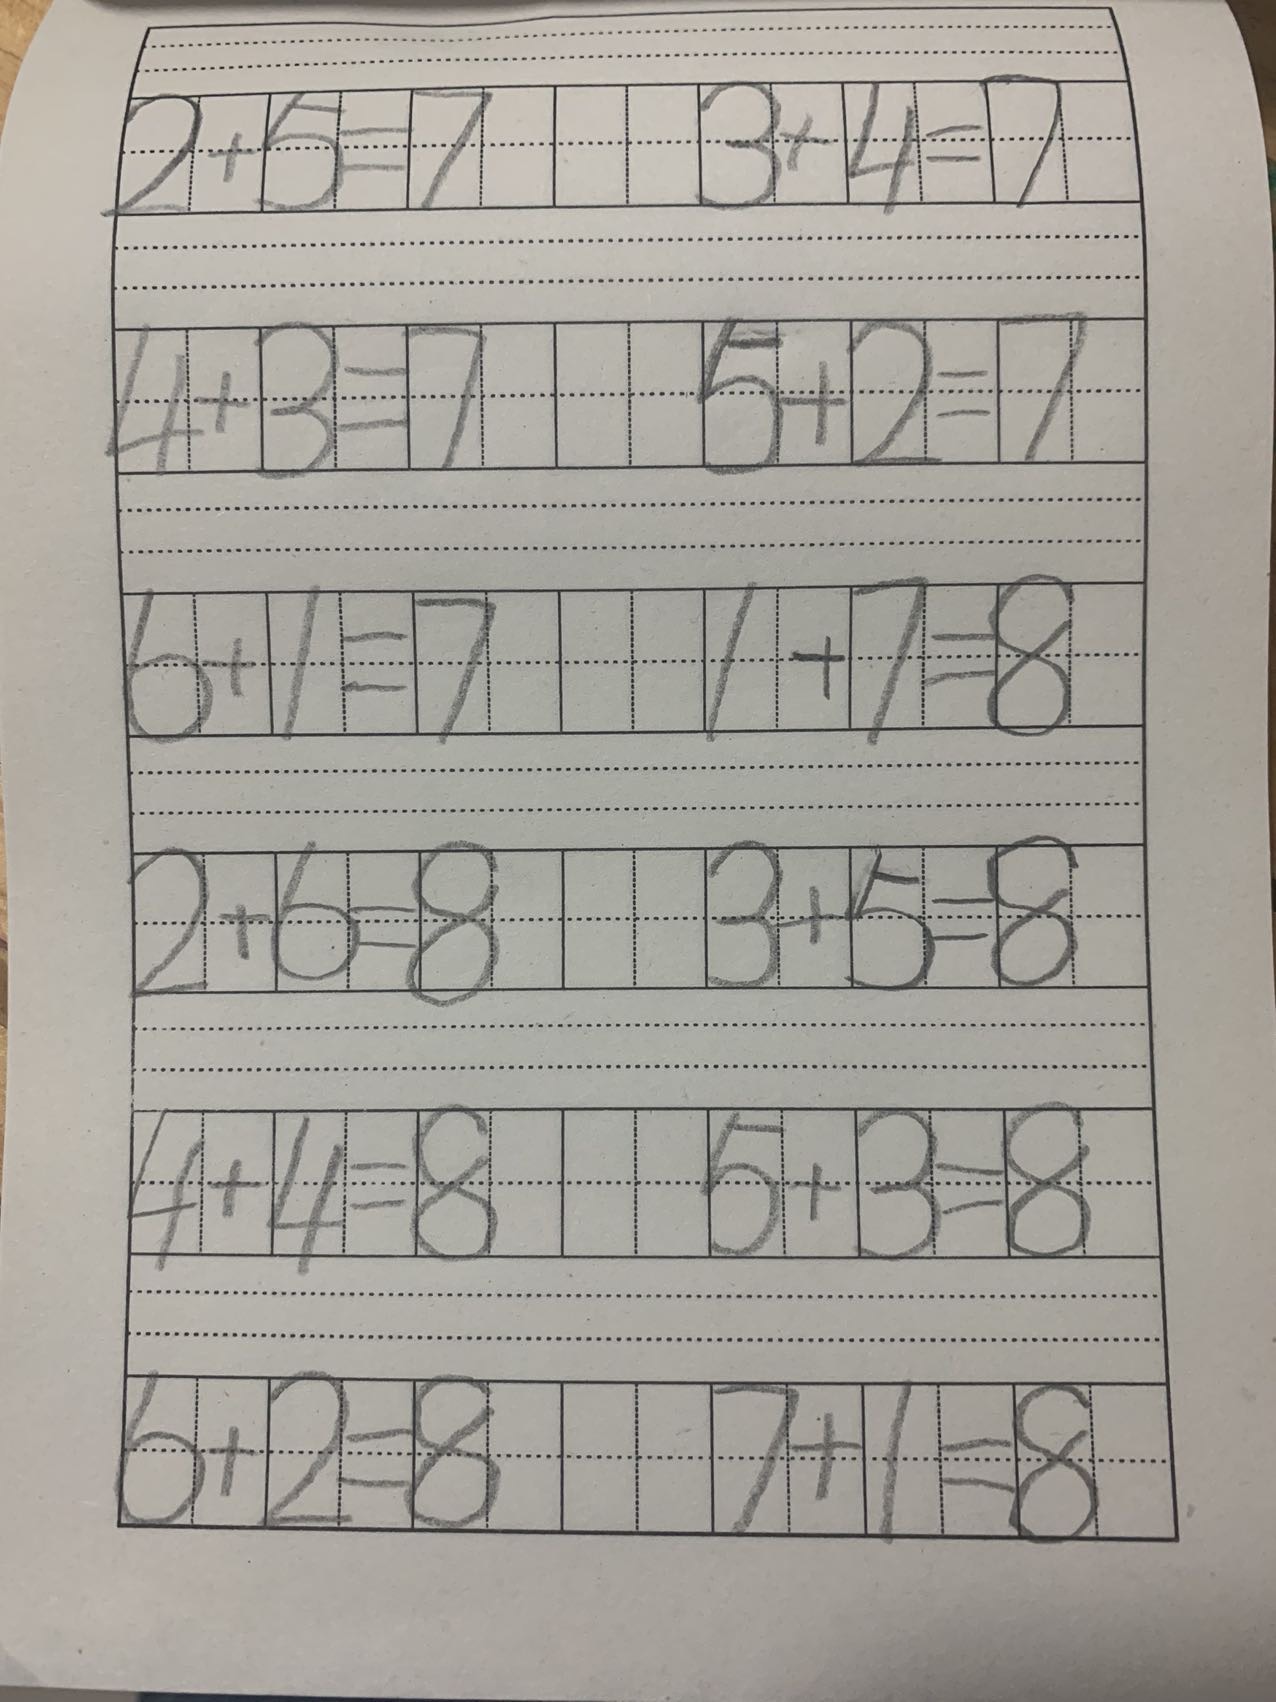 2+5=7 3+4=7
4+3=7 5+2=7
6+1=7 1+7=8
2+6=8 3+5=8
4+4=8 5+3=8
6+2=8 7+1=8